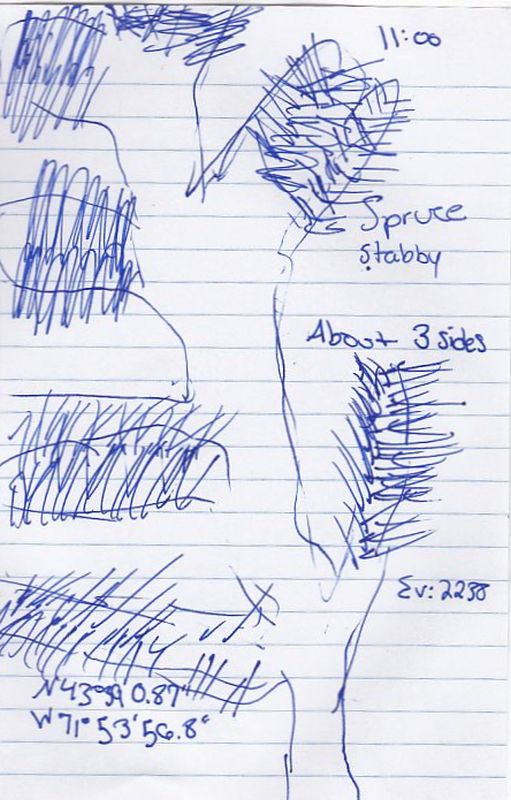 11:00
Spruce
Stabby
About 3 sides
Ev: 2238
N 43° 0.87"
W 71° 53' 56.8"